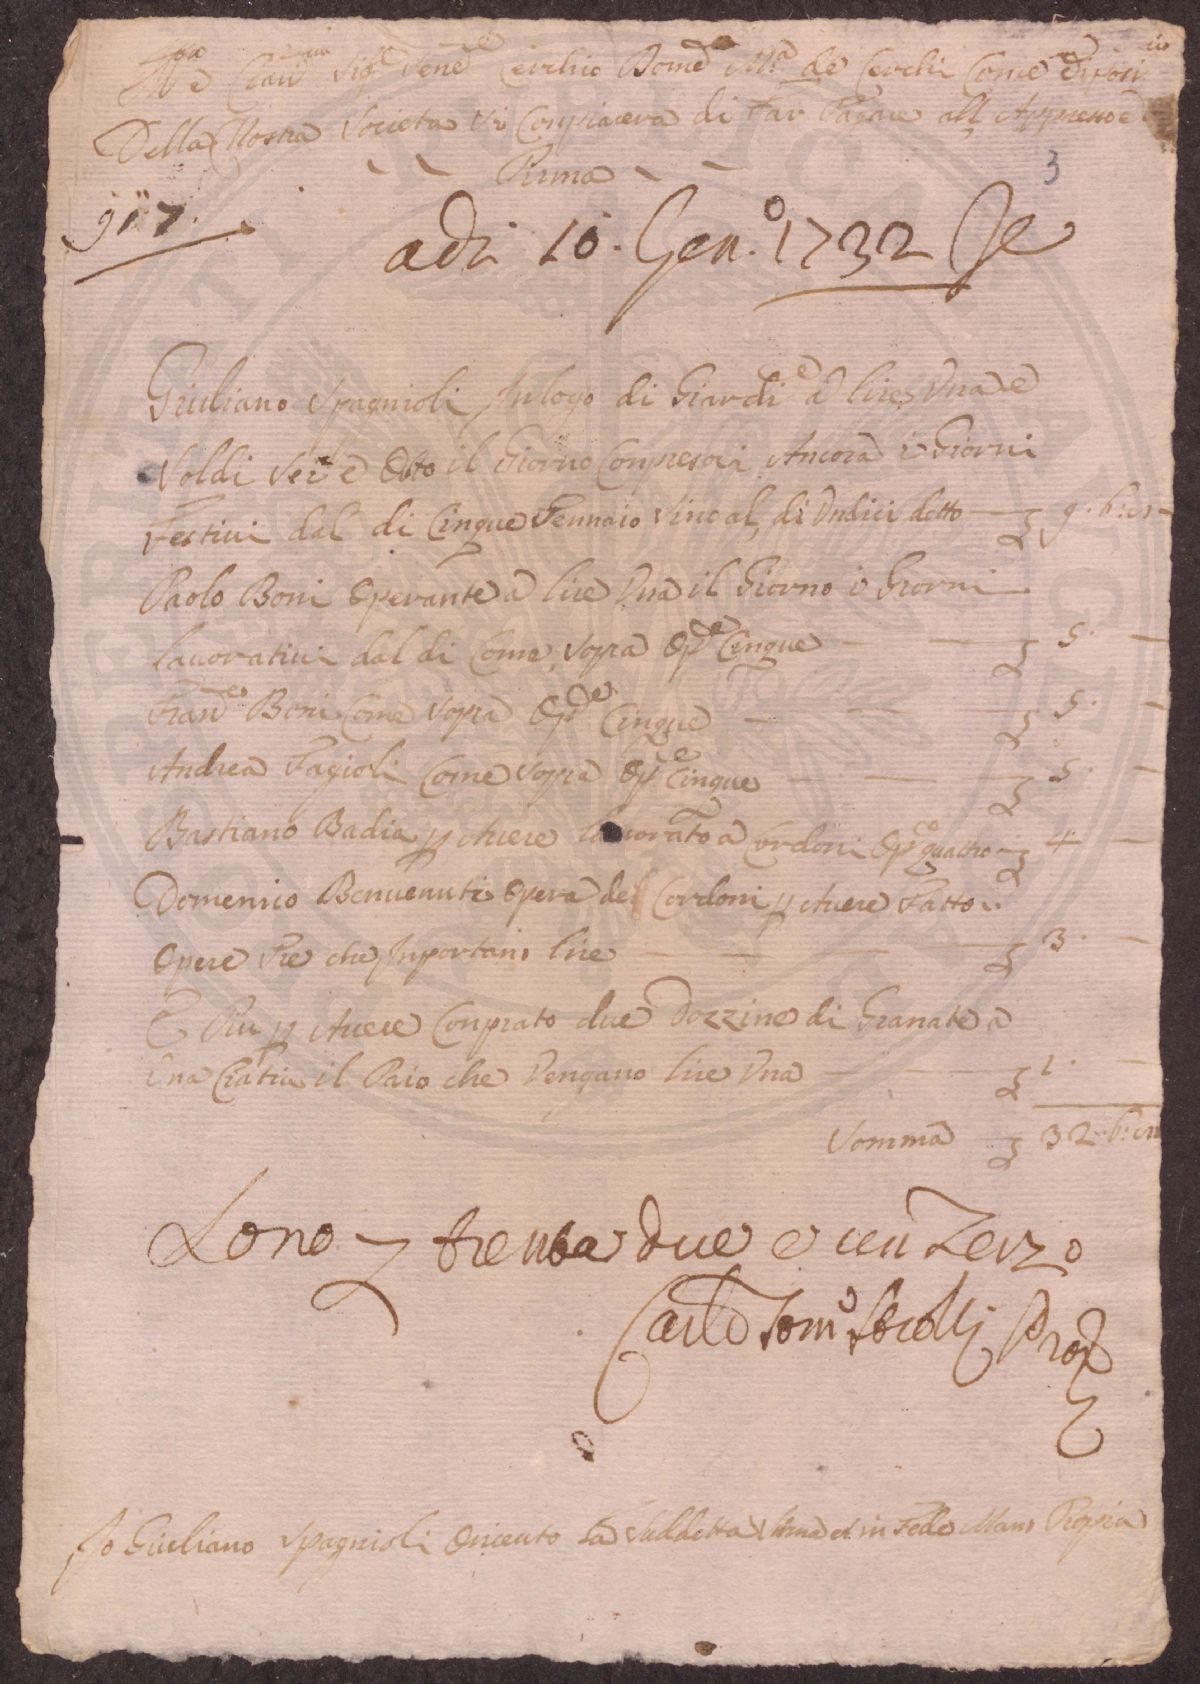 Della Nostra Società Si Conpiacera di Far Pagare all Appresso e
Prima
3
917.
adi 10. Gen.o 1732
Giuliano Spagnioli In logo di Giardi.e a lire Una e
Soldi Sei e Otto il Giorno Conpresoci Ancora i Giorni
Festivi dal di Cinque Gennaio Sino al di Undici detto
Paolo Boni Operante a lire Una il Giorno i Giorni
lavorativi dal di Come Sopra Op.e Cinque 5.
Fran.co Boni Come Sopra Op.e Cinque 5.
Andrea Fagioli Come Sopra Op.e Cinque 5.
Bastiano Badia p Avere lavorato a Cordoni Op.e quatro 4
Domenico Benvenuti Opera de Cordoni p Avere Fatto
Opere Tre che Inportano lire 3.
E Piu p Avere Conprato due Dozzine di Granate a
Una Cratia il Paio che Vengano lire Una 1.
Somma 32
Sono trenta due e un Terzo
Carlo Tom.o
Io Giuliano Spagnioli O riceuto La Suddetta Soma et in Fede Mano Propria